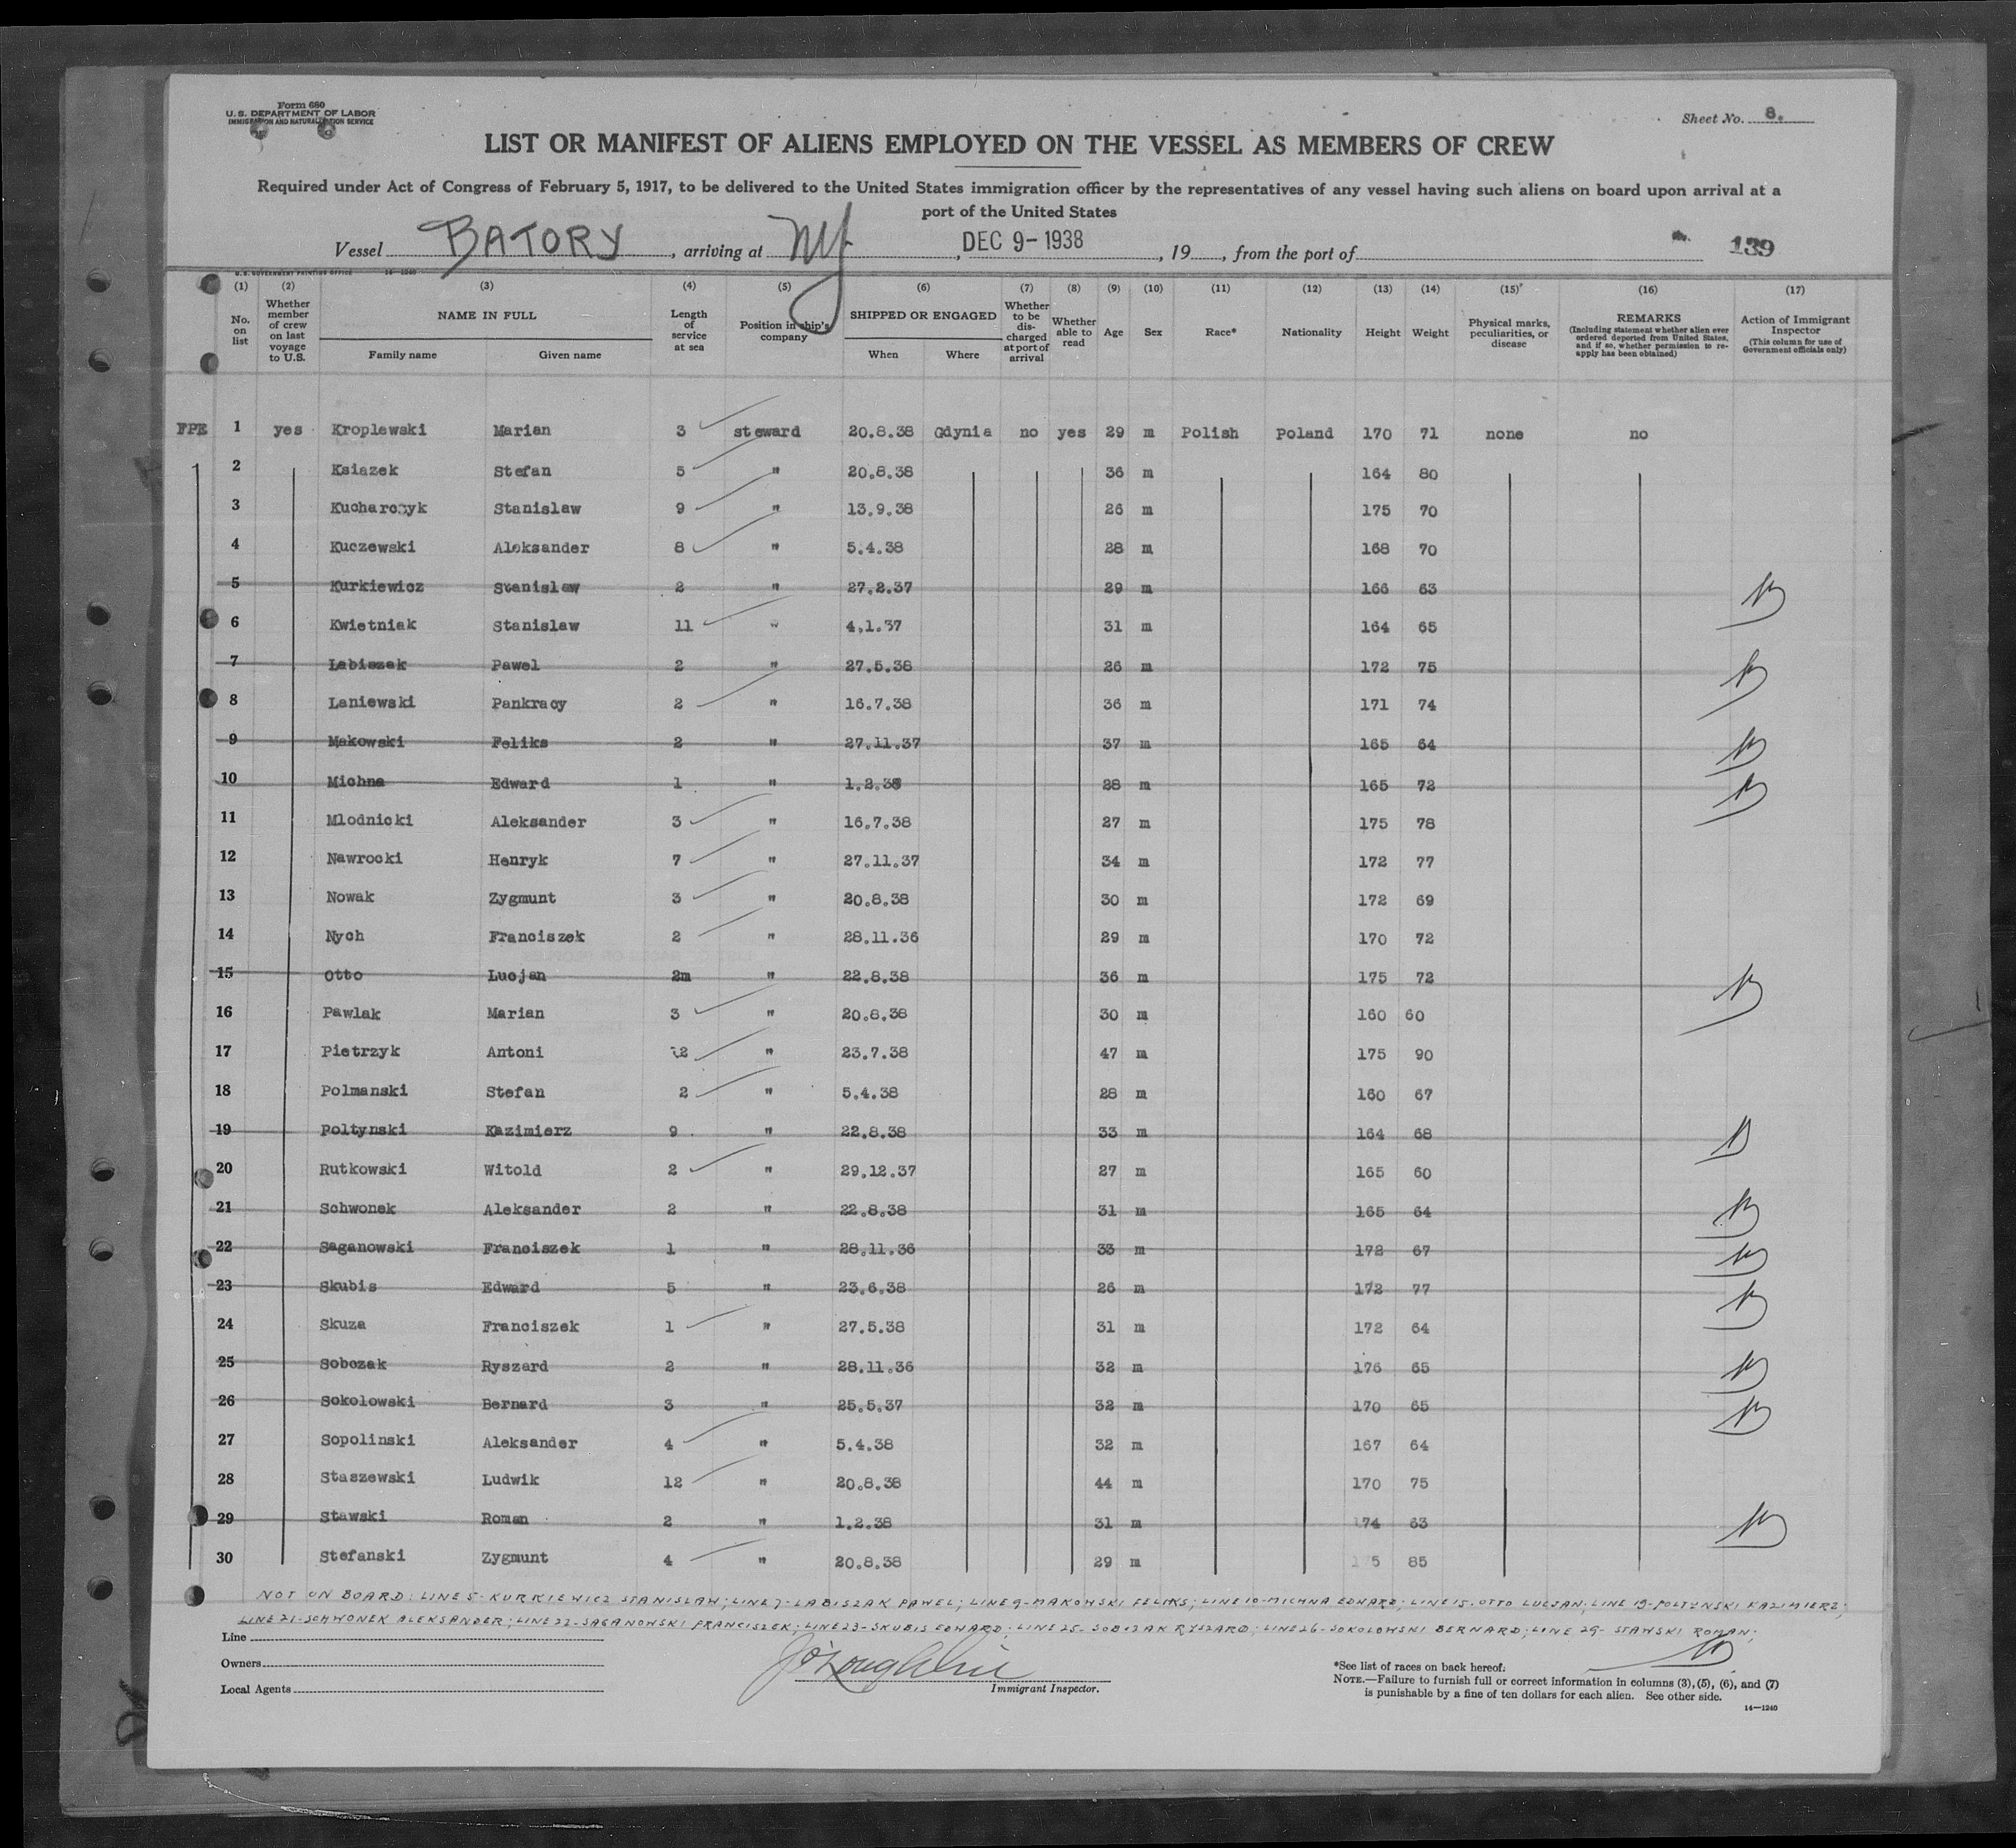 Form 680
U. S. DEPARTMENT OF LABOR
IMMIGRATION AND NATURALIZATION SERVICE
Sheet No. 8.
LIST OR MANIFEST OF ALIENS EMPLOYED ON THE VESSEL AS MEMBERS OF CREW
Required under Act of Congress of February 5, 1917, to be delivered to the United States immigration officer by the representatives of any vessel having such aliens on board upon arrival at a
port of the United States
Vessel BATORY, arriving at NY, DEC 9-1938, 19, from the port of 139
U. S. GOVERNMENT PRINTING OFFICE 14-1240
(1) (2) (3) (4) (5) (6) (7) (8) (9) (10) (11) (12) (13) (14) (15)* (16) (17)
No. on list
Whether member of crew on last voyage to U.S.
NAME IN FULL
Family name Given name
Length of service at sea
Position in ship's company
SHIPPED OR ENGAGED
When Where
Whether to be discharged at port of arrival
Whether able to read
Age Sex Race* Nationality Height Weight
Physical marks, peculiarities, or disease
REMARKS
(Including statement whether alien ever ordered deported from United States, and if so, whether permission to re-apply has been obtained)
Action of Immigrant Inspector
(This column for use of Government officials only)
FPE 1 yes Kroplewski Marian 3 steward 20.8.38 Gdynia no yes 29 m Polish Poland 170 71 none no
2 Ksiazek Stefan 5 " 20.8.38 36 m 164 80
3 Kucharczyk Stanislaw 9 " 13.9.38 26 m 175 70
4 Kuczewski Aleksander 8 " 5.4.38 28 m 168 70
5 Kurkiewicz Stanislaw 2 " 27.2.37 29 m 166 63
6 Kwietniak Stanislaw 11 " 4.1.37 31 m 164 65
7 Labiszak Pawel 2 " 27.5.38 26 m 172 75
8 Laniewski Pankracy 2 " 16.7.38 36 m 171 74
9 Makowski Feliks 2 " 27.11.37 37 m 165 64
10 Michna Edward 1 " 1.2.38 28 m 165 72
11 Mlodnicki Aleksander 3 " 16.7.38 27 m 175 78
12 Nawrocki Henryk 7 " 27.11.37 34 m 172 77
13 Nowak Zygmunt 3 " 20.8.38 30 m 172 69
14 Nych Franciszek 2 " 28.11.36 29 m 170 72
15 Otto Lucjan 2m " 22.8.38 36 m 175 72
16 Pawlak Marian 3 " 20.8.38 30 m 160 60
17 Pietrzyk Antoni 12 " 23.7.38 47 m 175 90
18 Polmanski Stefan 2 " 5.4.38 28 m 160 67
19 Poltynski Kazimierz 9 " 22.8.38 33 m 164 68
20 Rutkowski Witold 2 " 29.12.37 27 m 165 60
21 Schwonek Aleksander 2 " 22.8.38 31 m 165 64
22 Saganowski Franciszek 1 " 28.11.36 33 m 172 67
23 Skubis Edward 5 " 23.6.38 26 m 172 77
24 Skuza Franciszek 1 " 27.5.38 31 m 172 64
25 Sobczak Ryszard 2 " 28.11.36 32 m 176 65
26 Sokolowski Bernard 3 " 25.5.37 32 m 170 65
27 Sopolinski Aleksander 4 " 5.4.38 32 m 167 64
28 Staszewski Ludwik 12 " 20.8.38 44 m 170 75
29 Stawski Roman 2 " 1.2.38 31 m 174 63
30 Stefanski Zygmunt 4 " 20.8.38 29 m 85
NOT ON BOARD: LINE 5-KURKIEWICZ STANISLAW; LINE 7-LABISZAK PAWEL; LINE 9-MAKOWSKI FELIKS; LINE 10-MICHNA EDWARD; LINE 15-OTTO LUCJAN; LINE 19-POLTYNSKI KAZIMIERZ;
LINE 21-SCHWONEK ALEKSANDER; LINE 22-SAGANOWSKI FRANCISZEK; LINE 23-SKUBIS EDWARD; LINE 25-SOBCZAK RYSZARD; LINE 26-SOKOLOWSKI BERNARD; LINE 29-STAWSKI ROMAN;
Line
Owners
Local Agents
J O'Loughlin
Immigrant Inspector.
*See list of races on back hereof.
NOTE.—Failure to furnish full or correct information in columns (3), (5), (6), and (7)
is punishable by a fine of ten dollars for each alien. See other side.
14-1240